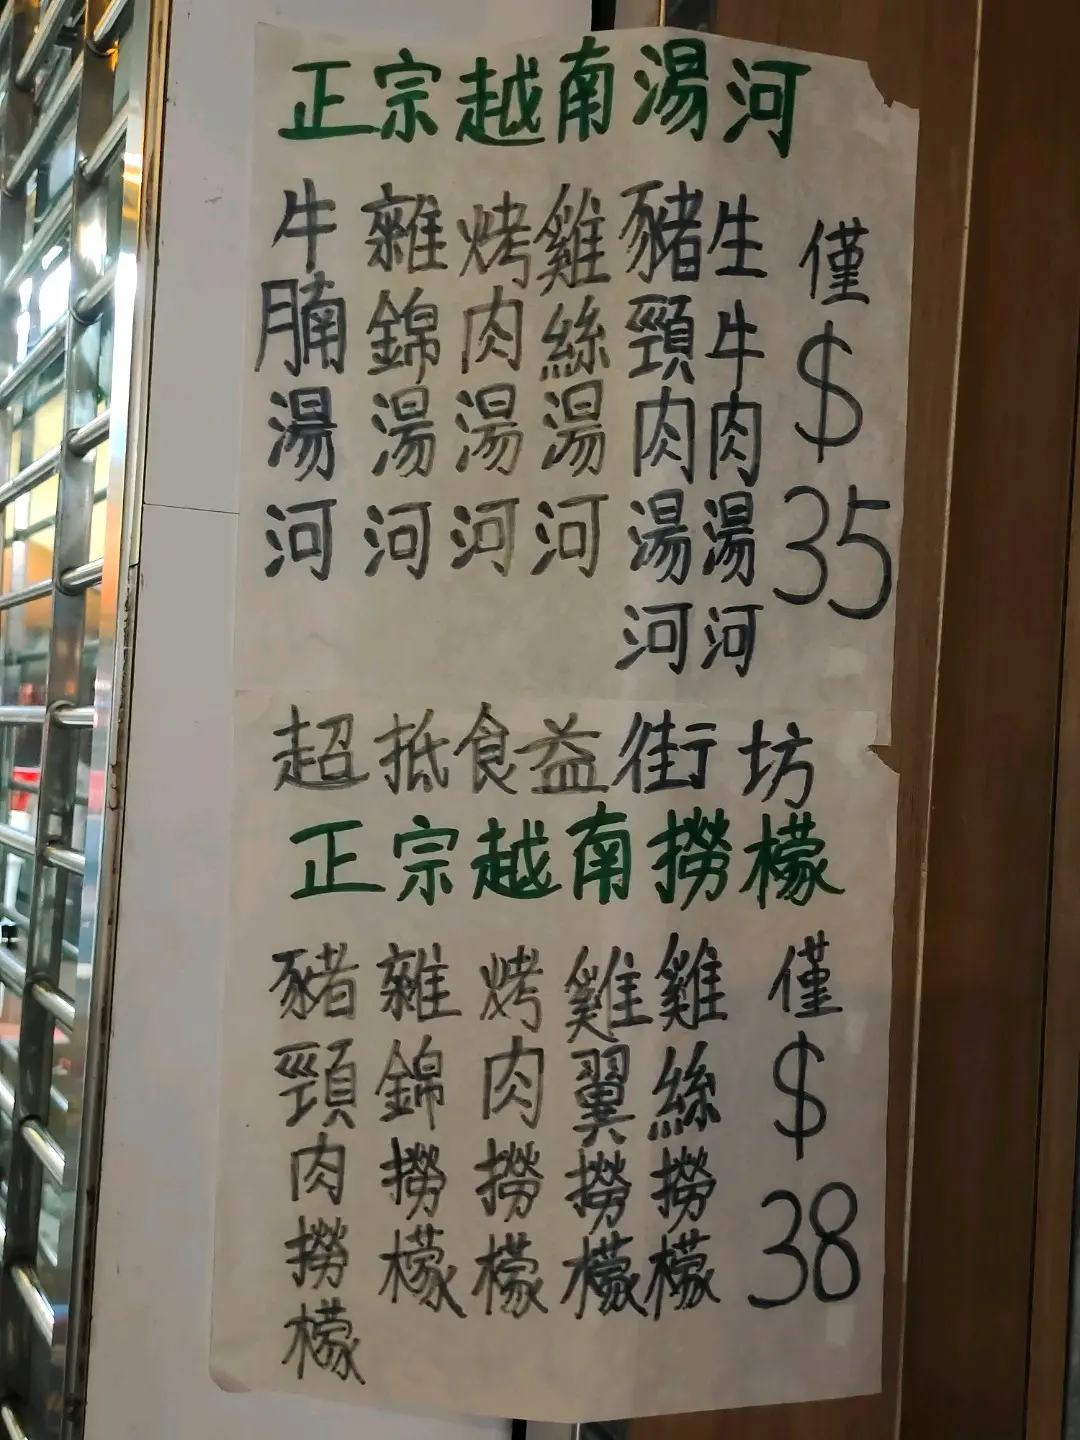 正宗越南湯河
牛腩湯河
雜錦湯河
烤肉湯河
雞絲湯河
豬頸肉湯河
生牛肉湯河
僅$35
超抵食益街坊
正宗越南撈檬
豬頸肉撈檬
雜錦撈檬
烤肉撈檬
雞翼撈檬
雞絲撈檬
僅$38